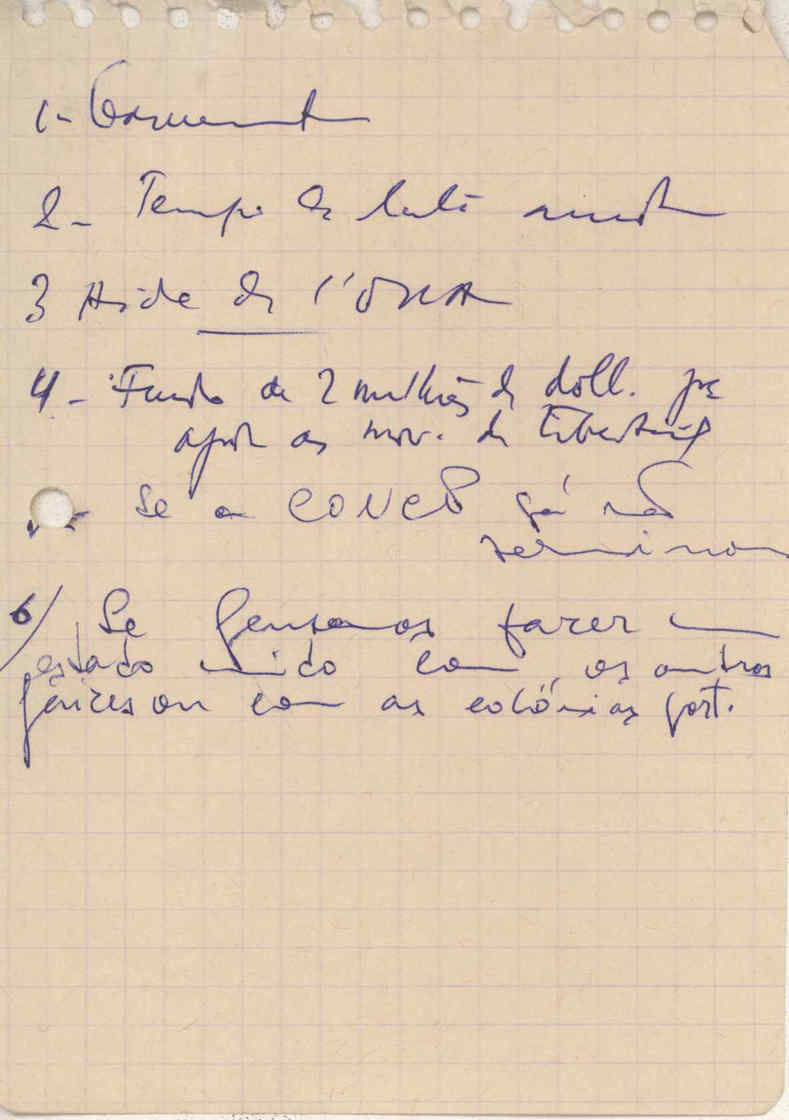 2- Tempo de luta
3 Aide de l'ONU
4- Fundo de 2 milhões de doll. pa
os mov. de libertação
- Se a CONCP já não
terminou
6/ Se pensamos fazer um
estado unido com os outros
países ou com as colónias port.